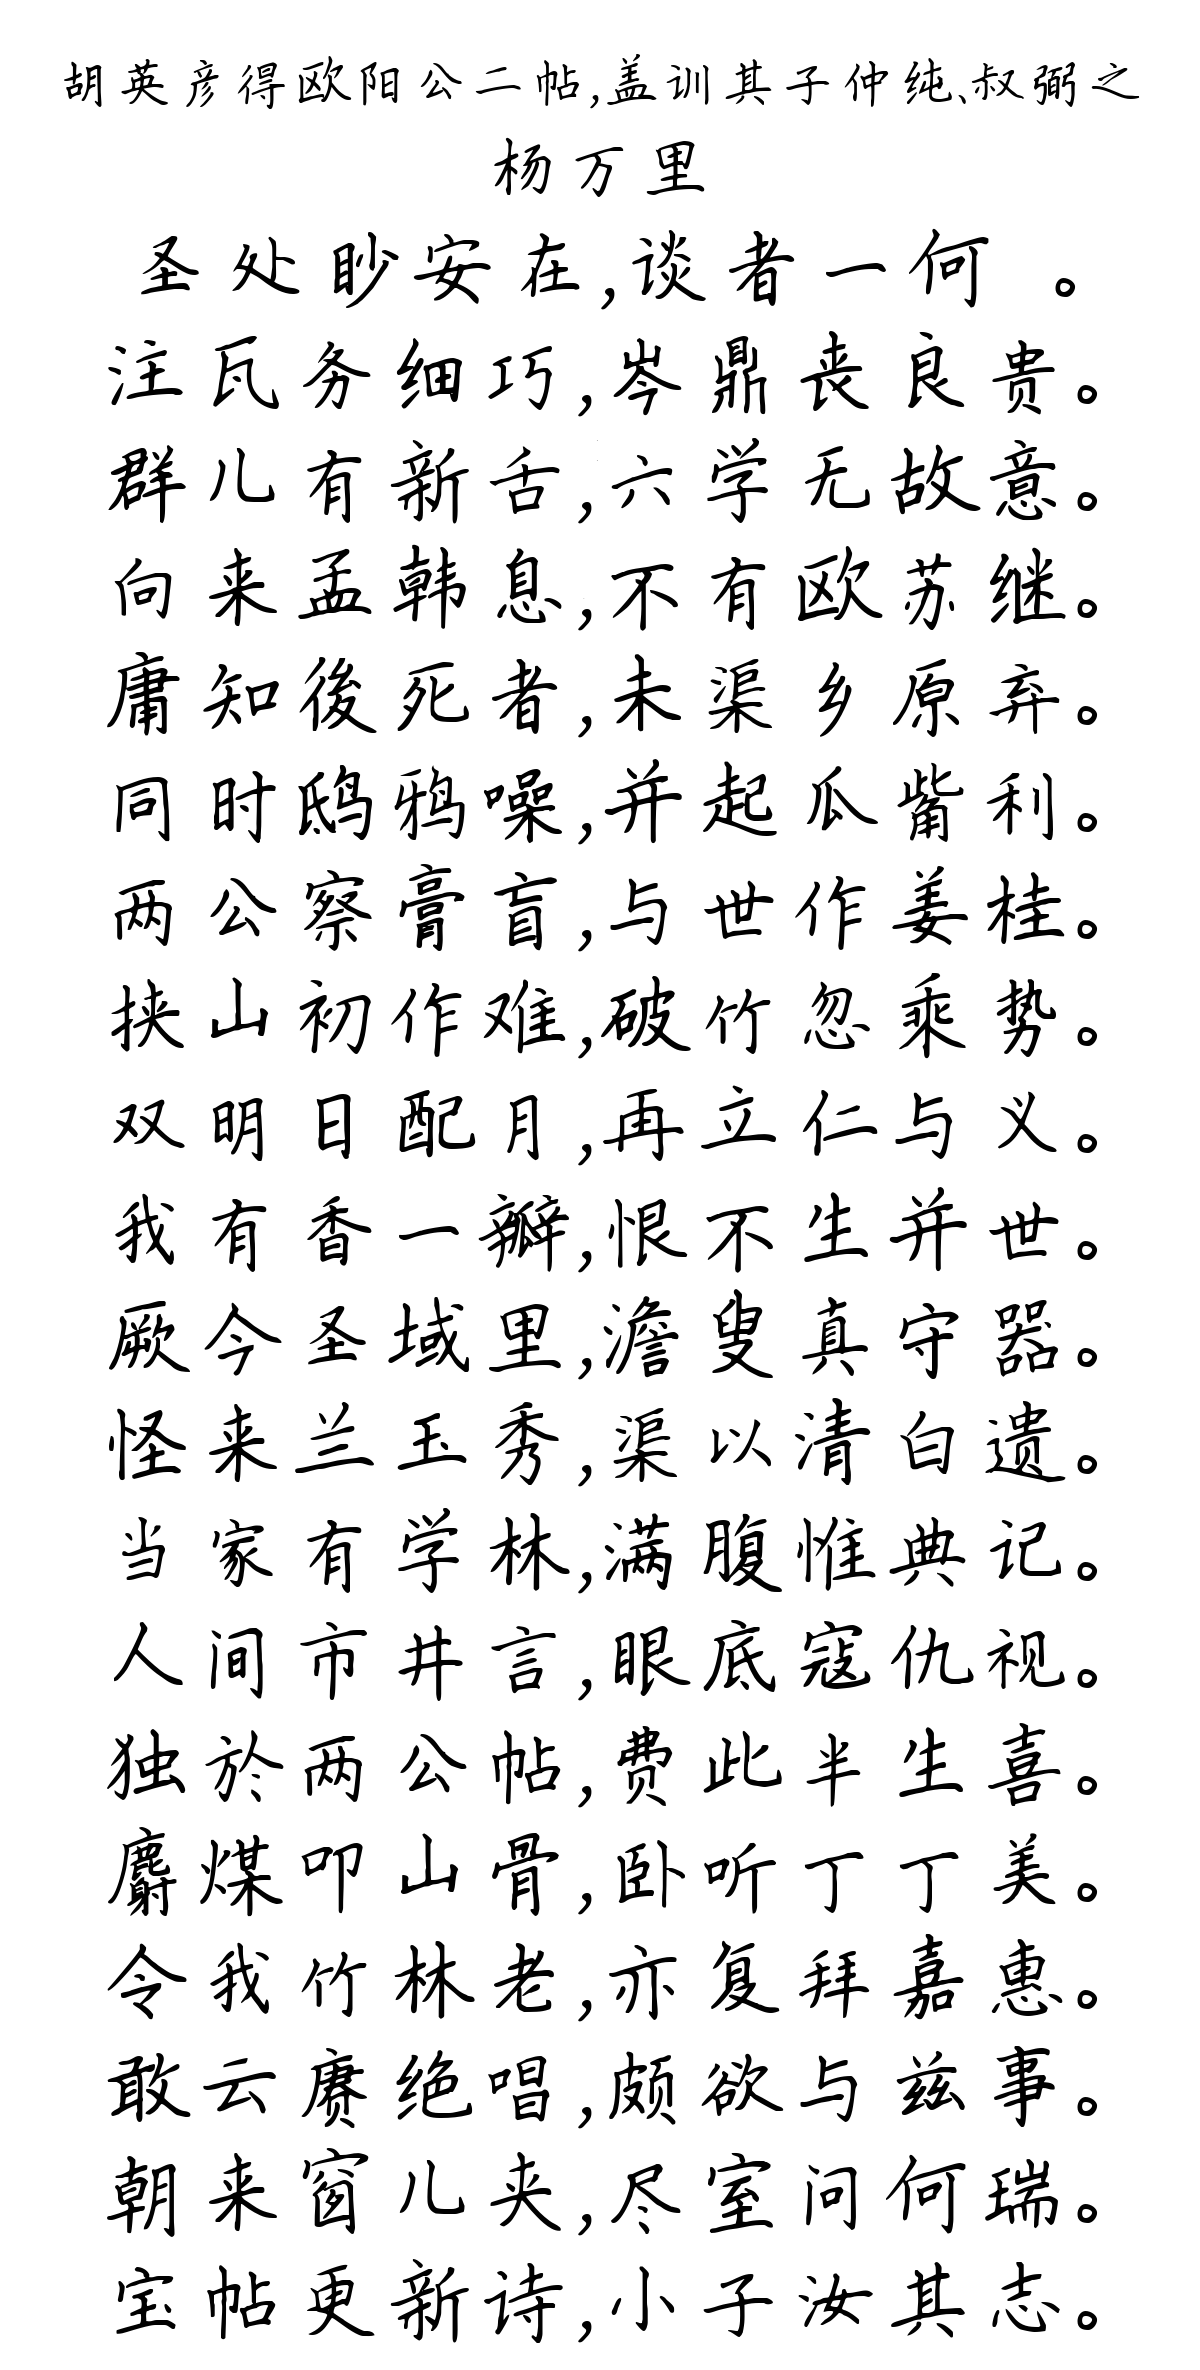 胡英彦得欧阳公二帖,盖训其子仲纯、叔弼之
杨万里
圣处眇安在,谈者一何 。
注瓦务细巧,岑鼎丧良贵。
群儿有新舌,六学无故意。
向来孟韩息,不有欧苏继。
庸知後死者,未渠乡原弃。
同时鸱鸦噪,并起瓜觜利。
两公察膏盲,与世作姜桂。
挟山初作难,破竹忽乘势。
双明日配月,再立仁与义。
我有香一瓣,恨不生并世。
厥今圣域里,澹叟真守器。
怪来兰玉秀,渠以清白遗。
当家有学林,满腹惟典记。
人间市井言,眼底寇仇视。
独於两公帖,费此半生喜。
麝煤叩山骨,卧听丁丁美。
令我竹林老,亦复拜嘉惠。
敢云赓绝唱,颇欲与兹事。
朝来窗儿夹,尽室问何瑞。
宝帖更新诗,小子汝其志。